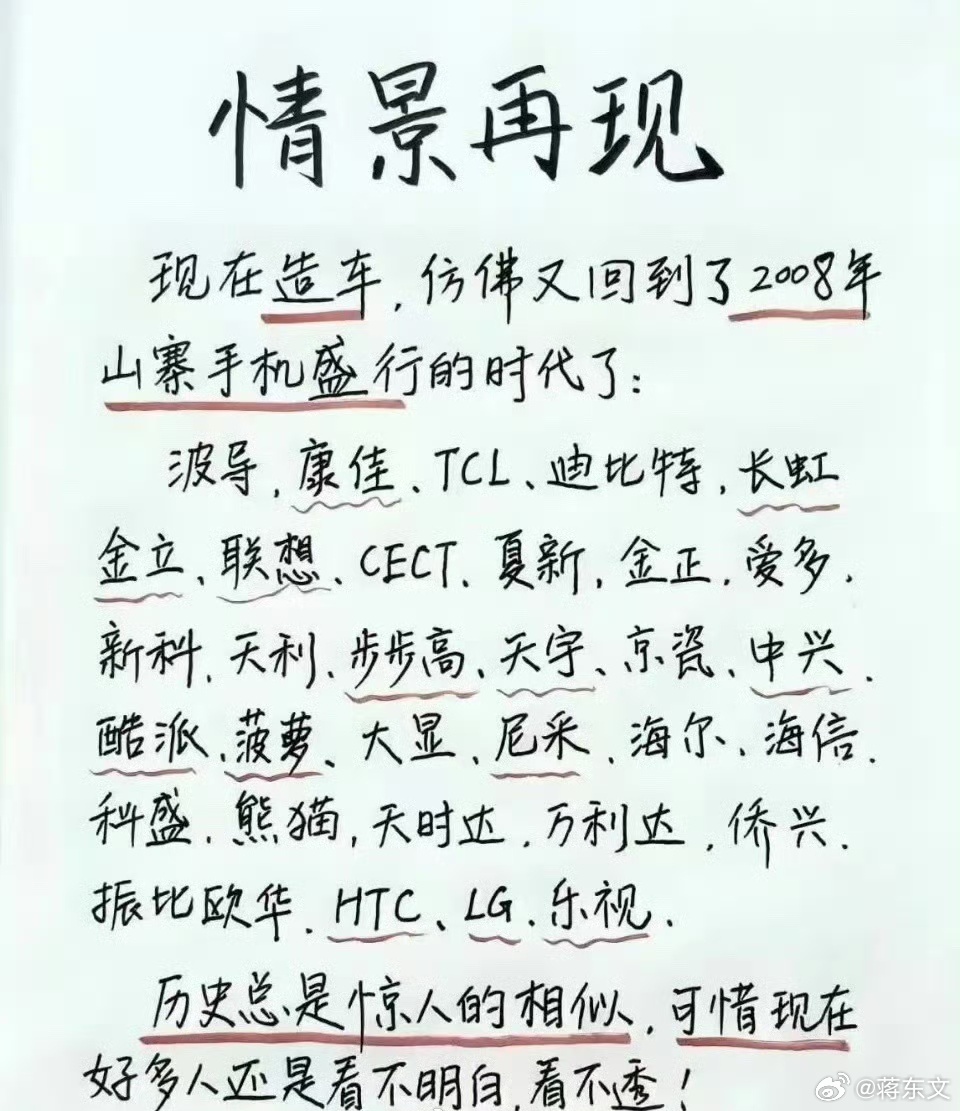 情景再现
现在造车,仿佛又回到了2008年
山寨手机盛行的时代了:
波导,康佳、TCL、迪比特,长虹
金立、联想、CECT、夏新,金正,爱多,
新科、天利、步步高、天宇、京瓷、中兴、
酷派、菠萝、大显、尼采、海尔、海信、
科盛,熊猫,天时达,万利达,侨兴,
振比欧华、HTC、LG、乐视、
历史总是惊人的相似,可惜现在
好多人还是看不明白,看不透!
@蒋东文